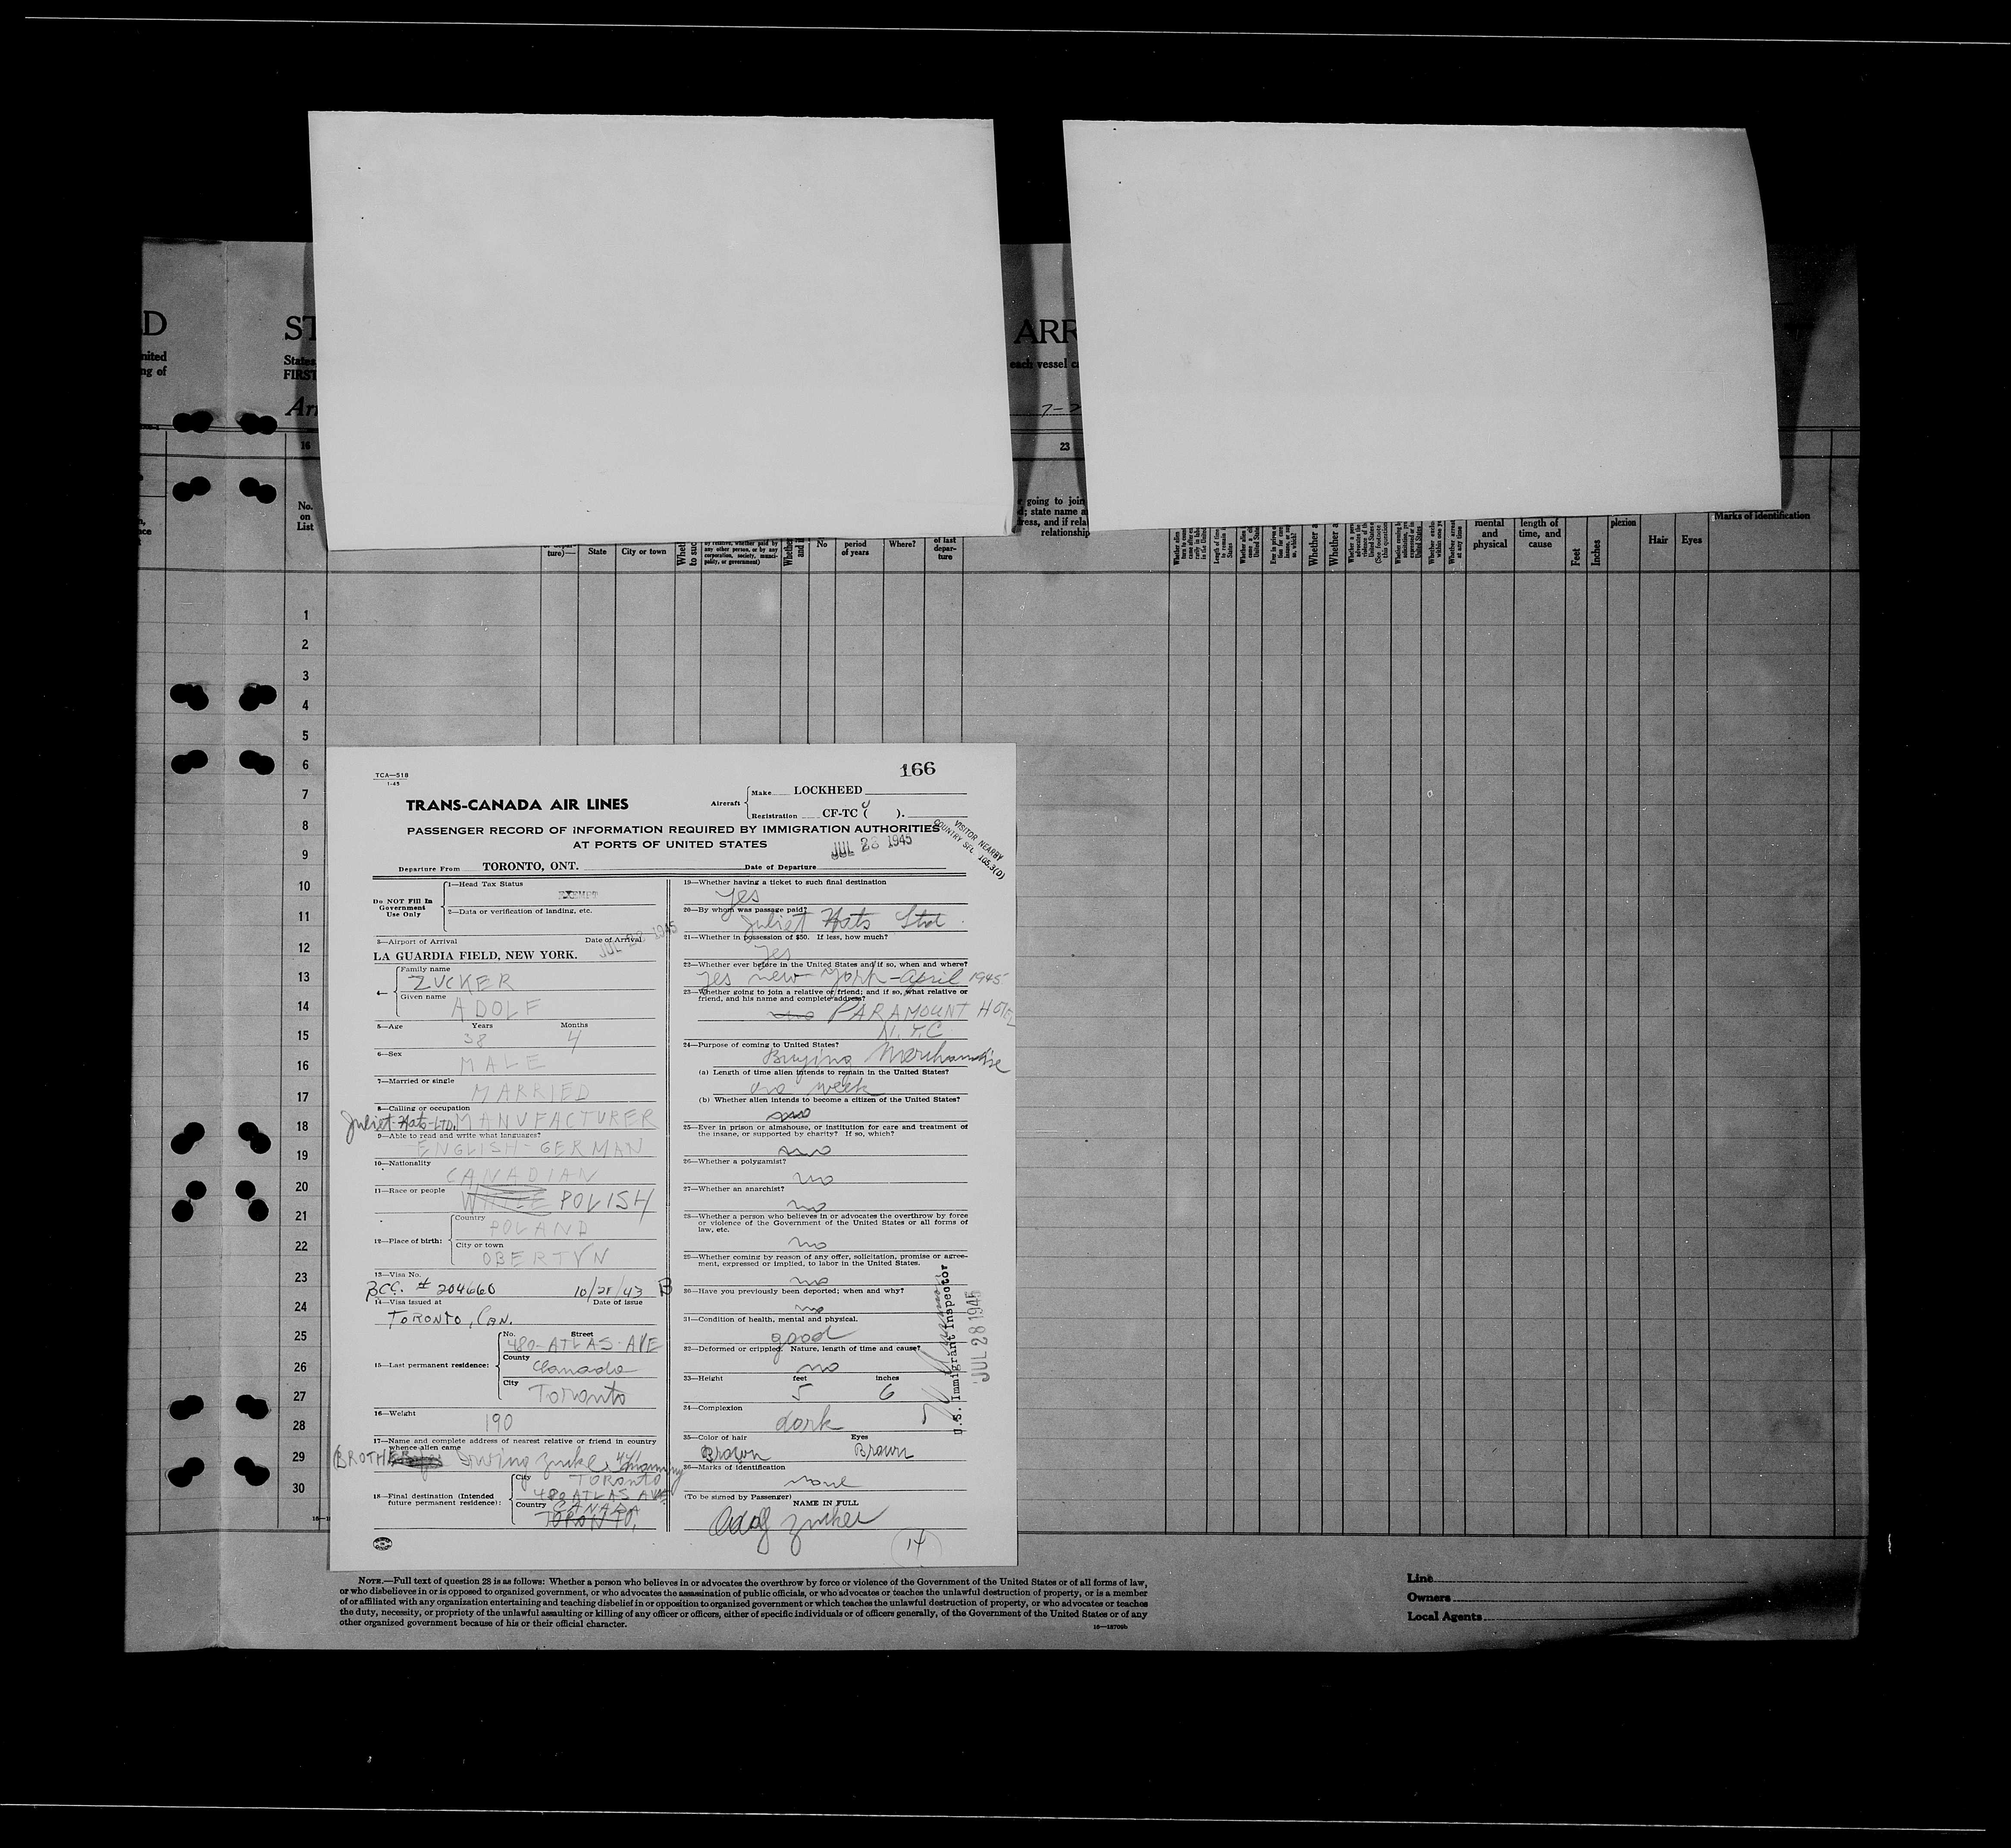 D
nited
ng of
ST
States
FIRST
Arr
ARR
each vessel ca
7-2
16
23
No.
on
List
going to join
; state name a
ress, and if rela
relationship
ture)—
State
City or town
by relative, whether paid by
any other person, or by any
corporation, society, munici-
pality, or government)
No
period
of years
Where?
of last
depar-
ture
mental
and
physical
length of
time, and
cause
Feet
Inches
plexion
Hair
Eyes
Marks of identification
1
2
3
4
5
6
7
8
9
10
11
12
13
14
15
16
17
18
19
20
21
22
23
24
25
26
27
28
29
30
TCA—518
1-45
166
TRANS-CANADA AIR LINES
Aircraft
Make LOCKHEED
Registration CF-TC ( ).
PASSENGER RECORD OF INFORMATION REQUIRED BY IMMIGRATION AUTHORITIES
AT PORTS OF UNITED STATES
JUL 28 1945
VISITOR NEARBY
COUNTRY SEC. 105.3(D)
Departure From TORONTO, ONT. Date of Departure
Do NOT Fill In
Government
Use Only
1—Head Tax Status
EXEMPT
2—Data or verification of landing, etc.
3—Airport of Arrival Date of Arrival
LA GUARDIA FIELD, NEW YORK. JUL 28 1945
4—
Family name
ZUCKER
Given name
ADOLF
5—Age Years Months
38 4
6—Sex
MALE
7—Married or single
MARRIED
8—Calling or occupation
Juliet-Hats-LTD. MANUFACTURER
9—Able to read and write what languages?
ENGLISH-GERMAN
10—Nationality
CANADIAN
11—Race or people
WHITE POLISH
12—Place of birth:
Country
POLAND
City or town
OBERTYN
13—Visa No.
BCC. # 204660 10/21/43 B
14—Visa issued at Date of issue
TORONTO, CAN.
15—Last permanent residence:
No. Street
480-ATLAS-AVE
County
Canada
City
Toronto
16—Weight
190
17—Name and complete address of nearest relative or friend in country
whence alien came
BROTHER Irving Zucker 441 Manning
18—Final destination (Intended
future permanent residence):
City
TORONTO
480 ATLAS AVE
Country
CANADA
TORONTO,
19—Whether having a ticket to such final destination
Yes
20—By whom was passage paid?
Juliet Hats Ltd
21—Whether in possession of $50. If less, how much?
Yes
22—Whether ever before in the United States and if so, when and where?
Yes new York - April 1945
23—Whether going to join a relative or friend; and if so, what relative or
friend, and his name and complete address?
no PARAMOUNT HOTEL
N.Y.C
24—Purpose of coming to United States?
Buying Merchandise
(a) Length of time alien intends to remain in the United States?
week
(b) Whether alien intends to become a citizen of the United States?
no
25—Ever in prison or almshouse, or institution for care and treatment of
the insane, or supported by charity? If so, which?
no
26—Whether a polygamist?
no
27—Whether an anarchist?
no
28—Whether a person who believes in or advocates the overthrow by force
or violence of the Government of the United States or all forms of
law, etc.
no
29—Whether coming by reason of any offer, solicitation, promise or agree-
ment, expressed or implied, to labor in the United States.
no
30—Have you previously been deported; when and why?
no
31—Condition of health, mental and physical.
good
32—Deformed or crippled. Nature, length of time and cause?
no
33—Height feet inches
5 6
34—Complexion
dark
35—Color of hair Eyes
Brown Brown
36—Marks of identification
none
(To be signed by Passenger)
NAME IN FULL
Adolf Zucker
14
U.S. Immigrant Inspector
JUL 28 1945
NOTE.—Full text of question 28 is as follows: Whether a person who believes in or advocates the overthrow by force or violence of the Government of the United States or of all forms of law,
or who disbelieves in or is opposed to organized government, or who advocates the assassination of public officials, or who advocates or teaches the unlawful destruction of property, or is a member
of or affiliated with any organization entertaining and teaching disbelief in or opposition to organized government or which teaches the unlawful destruction of property, or who advocates or teaches
the duty, necessity, or propriety of the unlawful assaulting or killing of any officer or officers, either of specific individuals or of officers generally, of the Government of the United States or of any
other organized government because of his or their official character.
16—18706b
Line
Owners
Local Agents